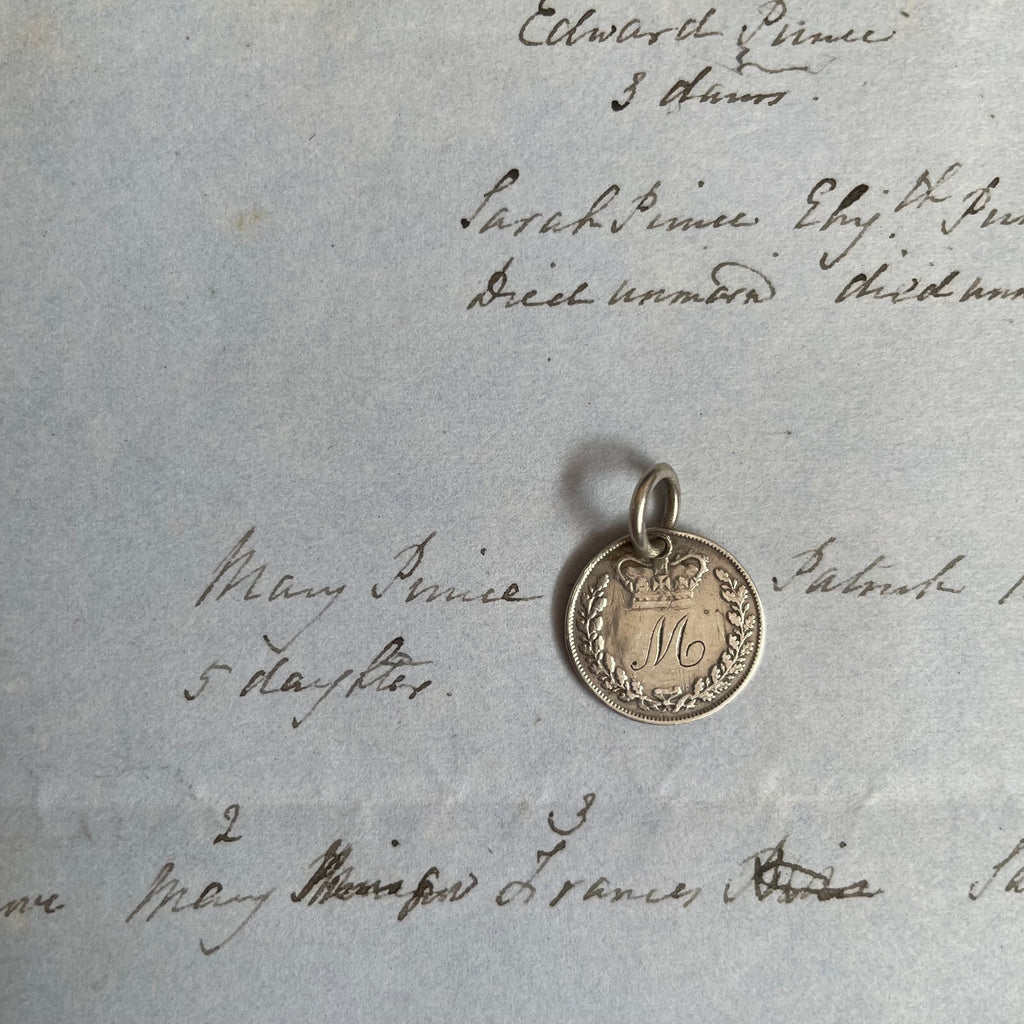 Edward Prince
3 daurs.
Sarah Prince Eliz.th
Died unmarrd died
Mary Prince Patrick
5 daughters.
2 3
Mary Frances
M